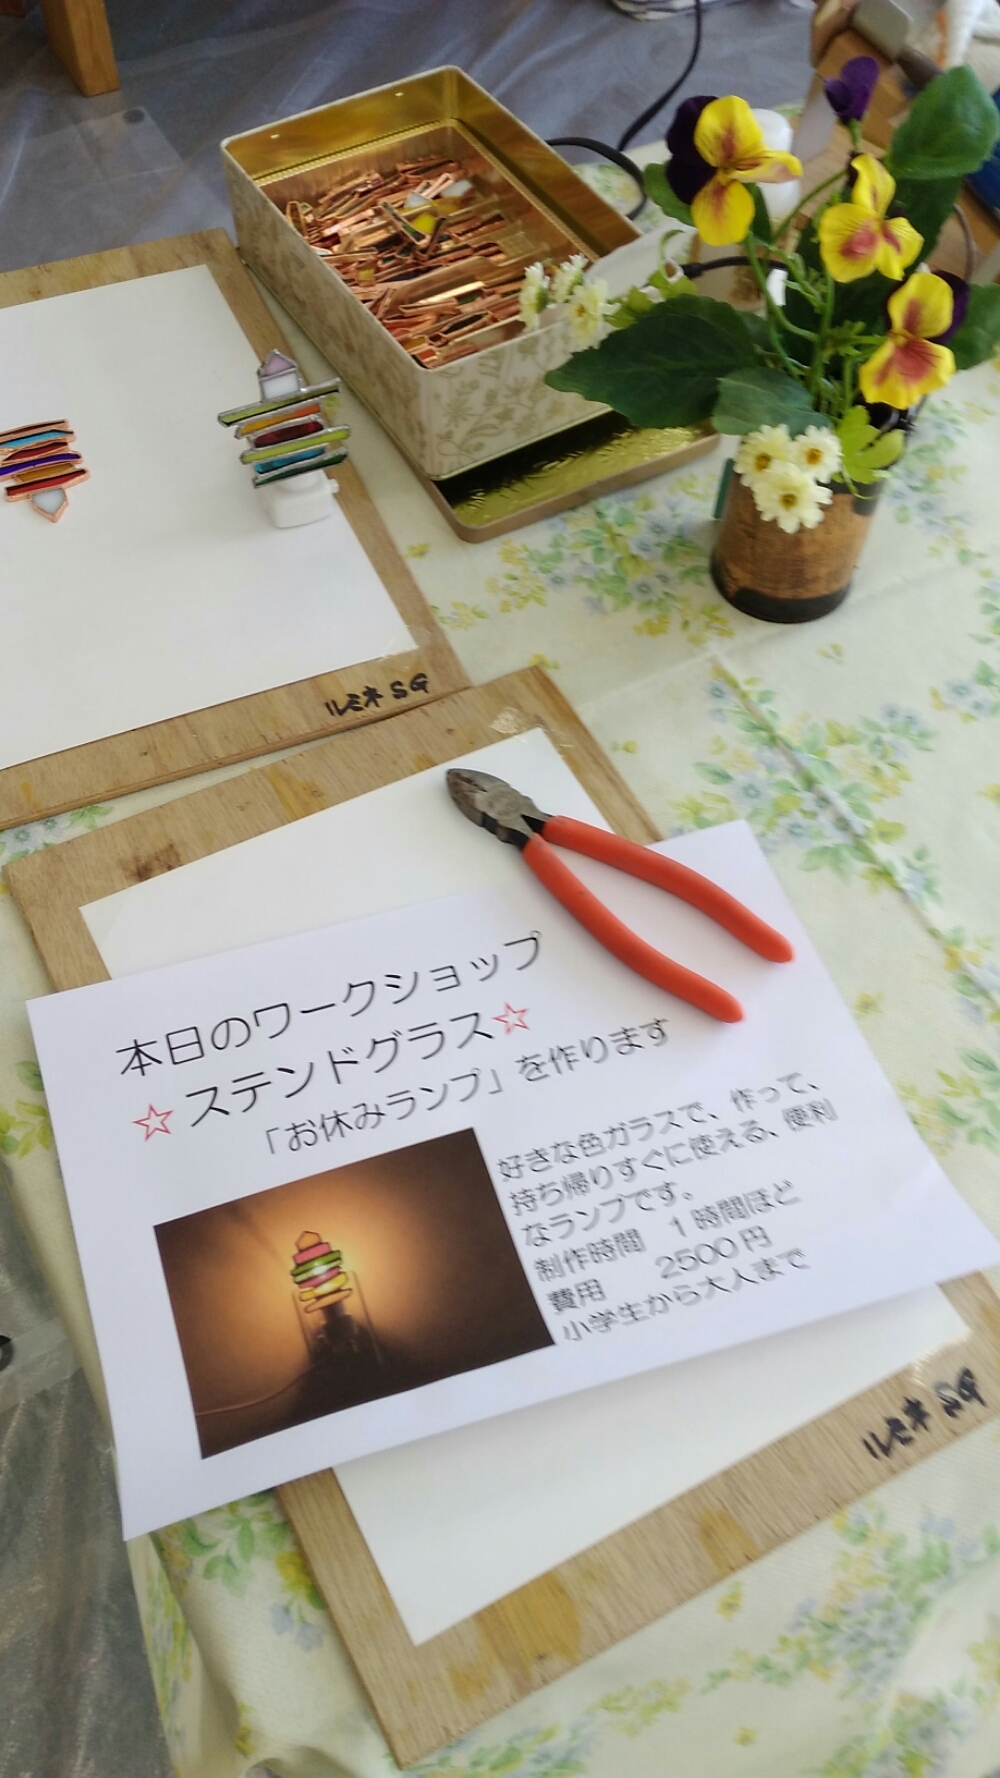 ルミネ SG
本日のワークショップ
☆ステンドグラス☆
「お休みランプ」を作ります
好きな色ガラスで、作って、
持ち帰りすぐに使える、便利
なランプです。
制作時間　1時間ほど
費用　2500円
小学生から大人まで
ルミネ SG